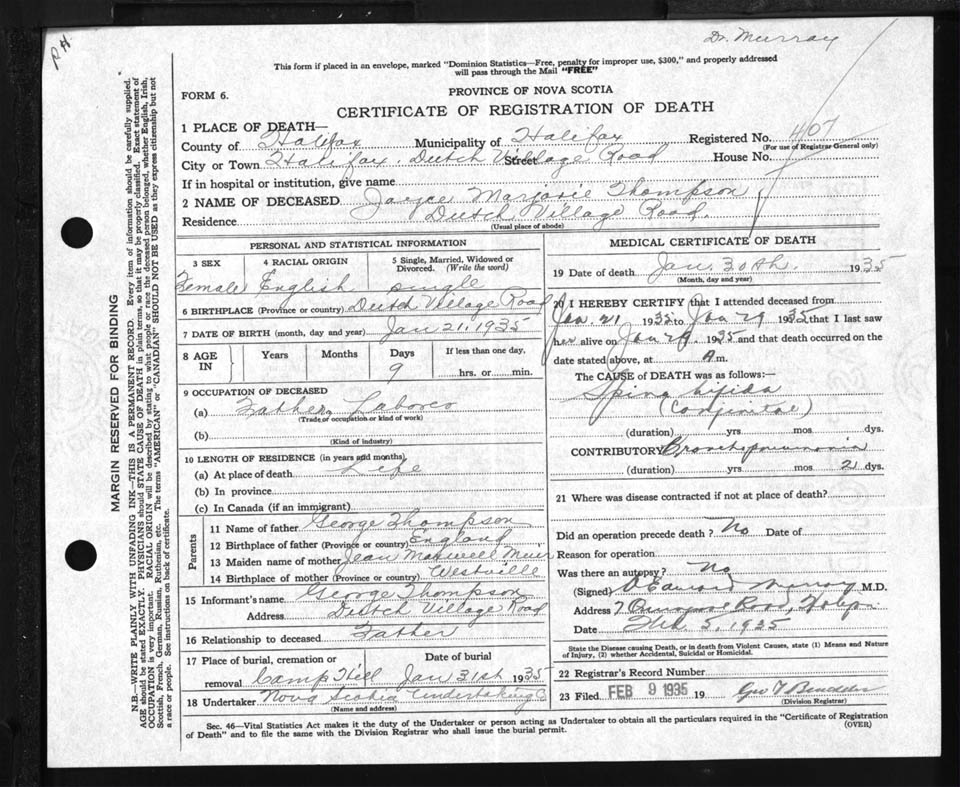 Dr. Murray
P.H.
This form if placed in an envelope, marked "Dominion Statistics—Free, penalty for improper use, $300," and properly addressed
will pass through the Mail "FREE"
PROVINCE OF NOVA SCOTIA
FORM 6.
CERTIFICATE OF REGISTRATION OF DEATH
1 PLACE OF DEATH—
County of Halifax Municipality of Halifax Registered No. 407
(For use of Registrar General only)
City or Town Halifax. Dutch Village Road Street House No.
If in hospital or institution, give name
2 NAME OF DECEASED Joyce Marjorie Thompson
Residence Dutch Village Road.
(Usual place of abode)
PERSONAL AND STATISTICAL INFORMATION
3 SEX 4 RACIAL ORIGIN 5 Single, Married, Widowed or
Divorced. (Write the word)
Female English single
6 BIRTHPLACE (Province or country) Dutch Village Road
7 DATE OF BIRTH (month, day and year) Jan 21, 1935
8 AGE IN Years Months Days If less than one day,
9 hrs. or min.
9 OCCUPATION OF DECEASED
(a) Father,
(Trade or occupation or kind of work)
(b)
(Kind of industry)
10 LENGTH OF RESIDENCE (in years and months)
(a) At place of death Life
(b) In province
(c) In Canada (if an immigrant)
Parents
11 Name of father George Thompson
12 Birthplace of father (Province or country) England
13 Maiden name of mother Jean Maxwell Muir
14 Birthplace of mother (Province or country) Westville
15 Informant's name George Thompson
Address Dutch Village Road
16 Relationship to deceased Father
17 Place of burial, cremation or Date of burial
removal Camp Hill Jan 31st 1935
18 Undertaker Nova Scotia Undertaking Co
(Name and address)
MEDICAL CERTIFICATE OF DEATH
19 Date of death Jan. 30th. 1935
(Month, day and year)
20 I HEREBY CERTIFY that I attended deceased from
Jan. 21 1935 to Jan 29 1935 that I last saw
her alive on Jan 29 1935 and that death occurred on the
date stated above, at A m.
The CAUSE of DEATH was as follows:—
Spina bifida
(Congenital)
(duration) yrs. mos. dys.
CONTRIBUTORY Bronchopneumonia
(duration) yrs. mos. 2 dys.
21 Where was disease contracted if not at place of death?
Did an operation precede death? No Date of
Reason for operation
Was there an autopsy? No
(Signed) Murray M.D.
Address 7 Road, Halifax
Date Feb. 5, 1935
State the Disease causing Death, or in death from Violent Causes, state (1) Means and Nature
of Injury, (2) whether Accidental, Suicidal or Homicidal.
22 Registrar's Record Number
23 Filed FEB 9 1935 19 Geo
(Division Registrar)
Sec. 46—Vital Statistics Act makes it the duty of the Undertaker or person acting as Undertaker to obtain all the particulars required in the "Certificate of Registration
of Death" and to file the same with the Division Registrar who shall issue the burial permit. (OVER)
MARGIN RESERVED FOR BINDING
N.B.—WRITE PLAINLY WITH UNFADING INK—THIS IS A PERMANENT RECORD. Every item of information should be carefully supplied.
AGE should be stated EXACTLY. PHYSICIANS should STATE CAUSE OF DEATH in plain terms, so that it may be properly classified. Exact statement of
OCCUPATION is very important. RACIAL ORIGIN will be described by stating to what people or race the deceased person belonged, whether English, Irish,
Scottish, French, German, Russian, Ruthenian, etc. The terms "AMERICAN" or "CANADIAN" SHOULD NOT BE USED as they express citizenship but not
a race or people. See instructions on back of certificate.